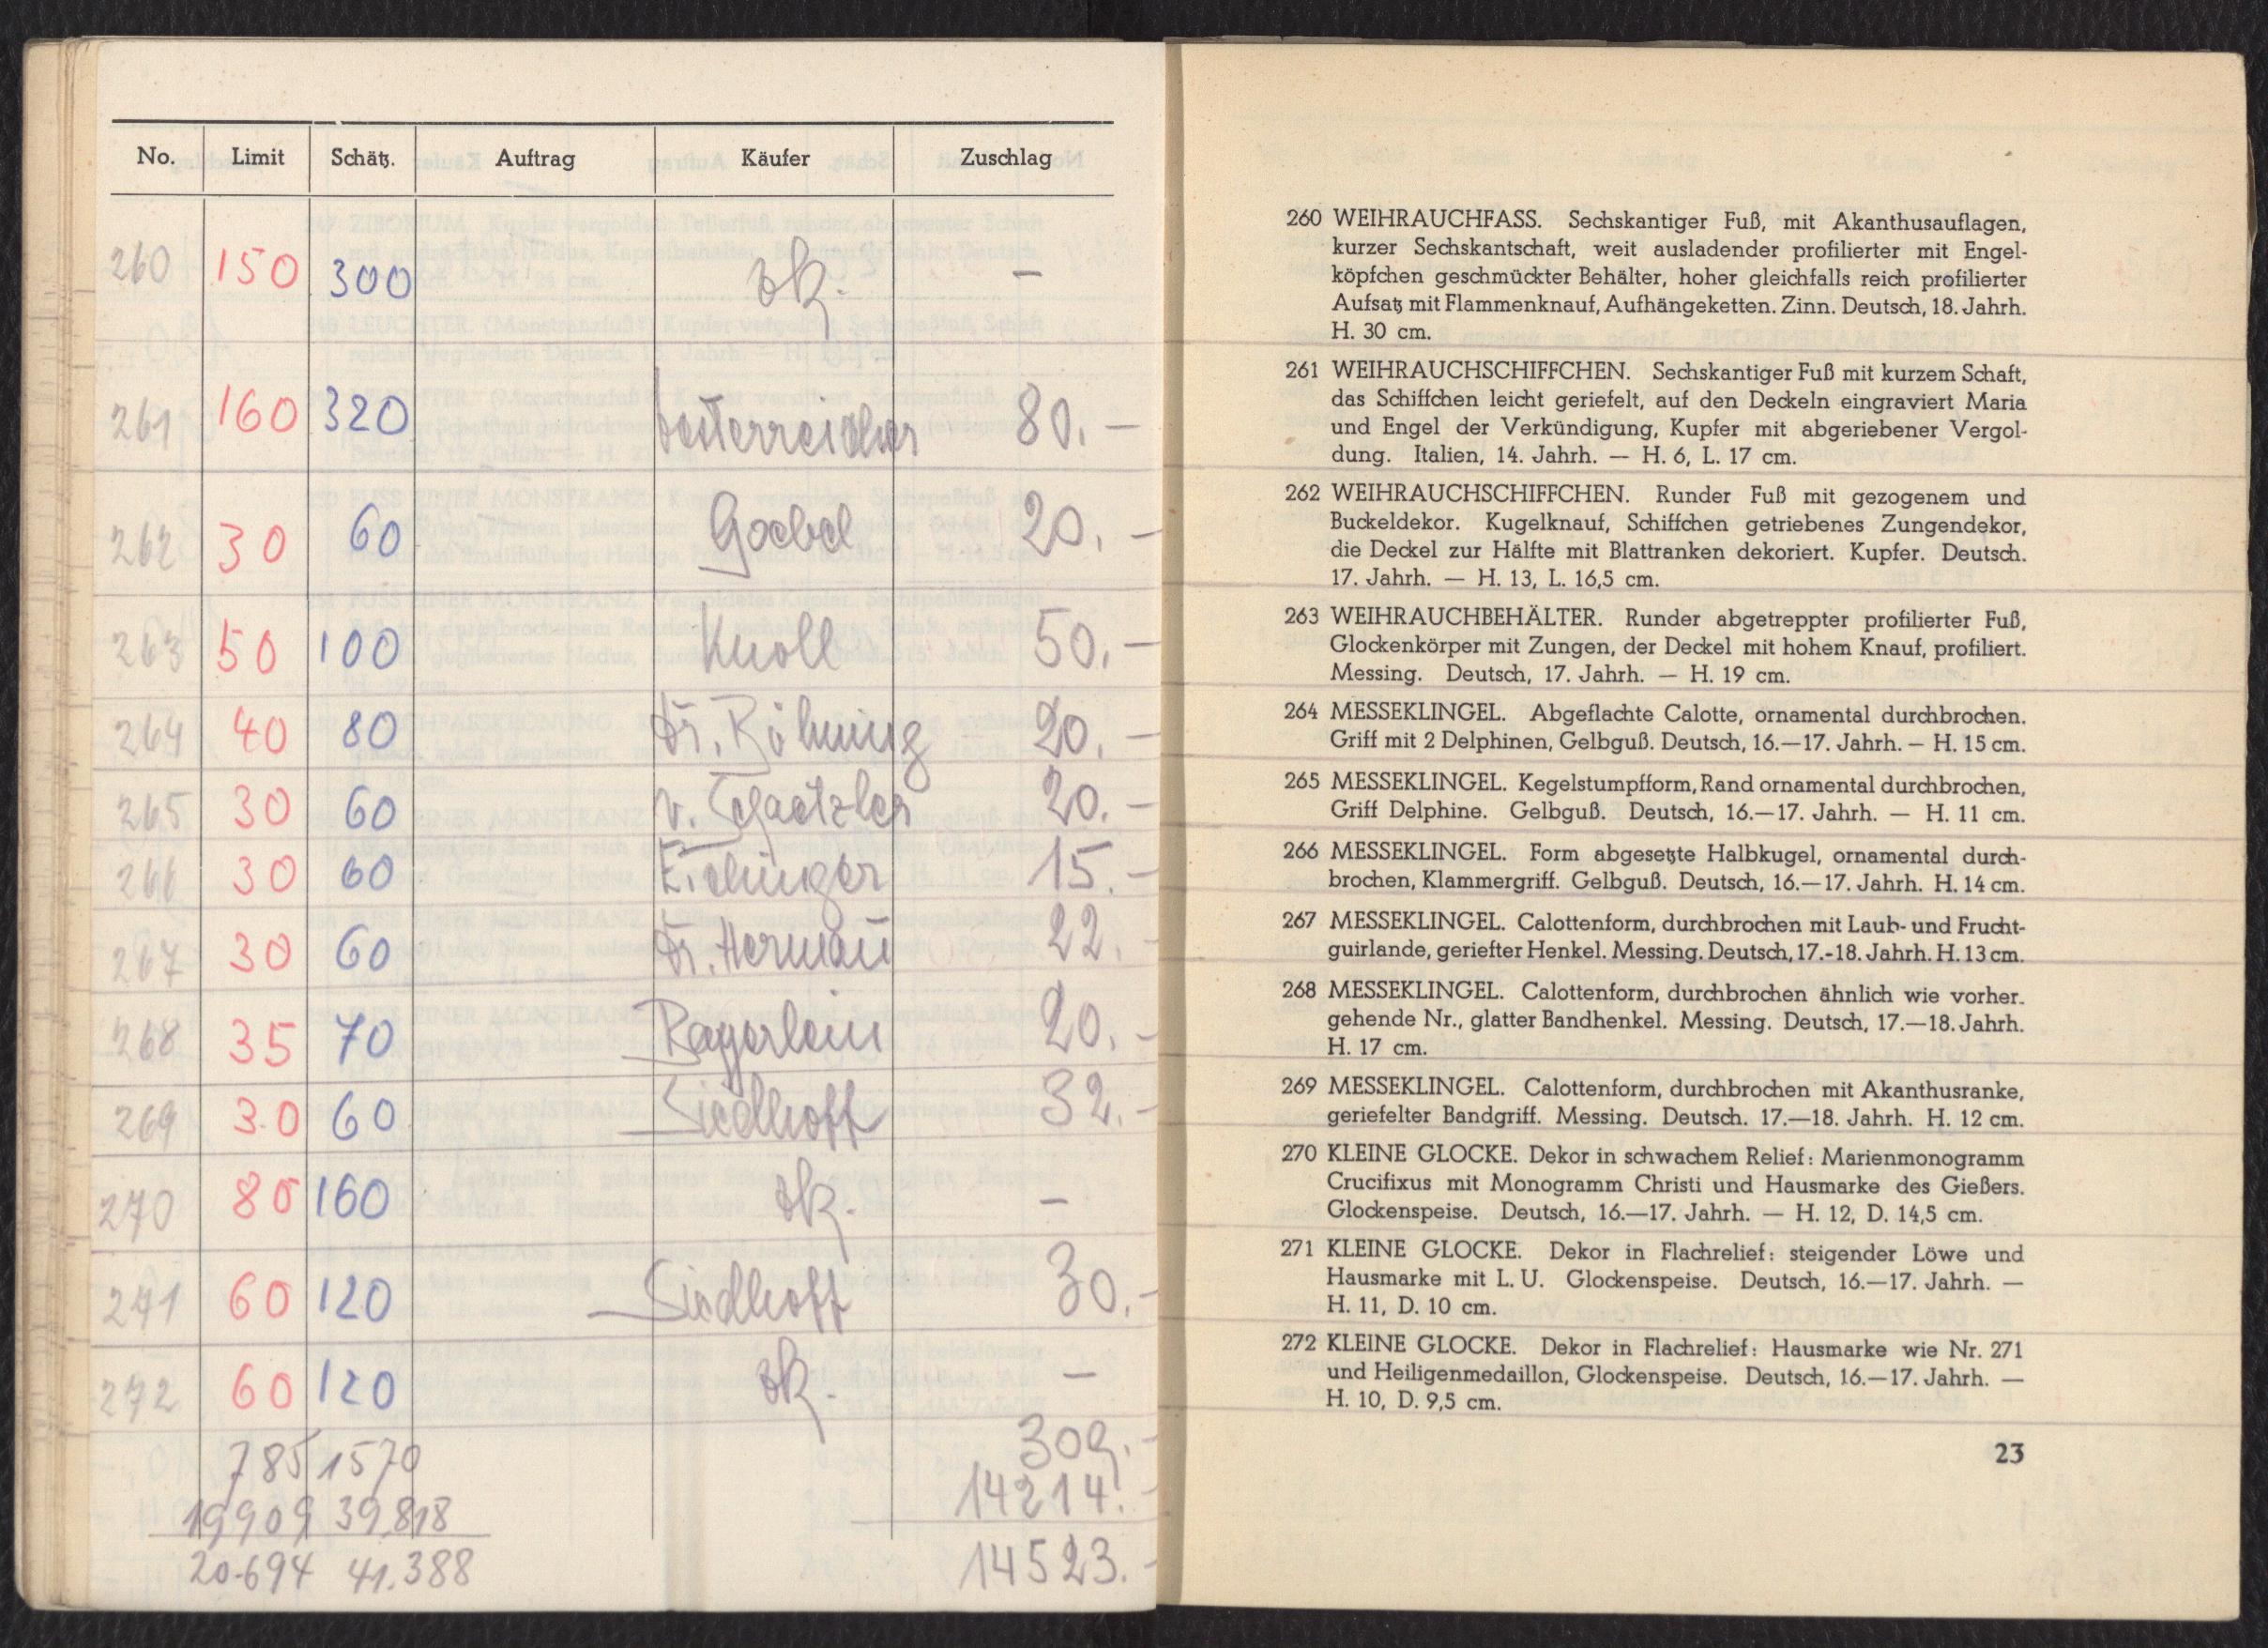 No. Limit Schätz. Auftrag Käufer Zuschlag
260 150 300 zk. –
261 160 320 Oesterreicher 80.–
262 30 60 Goebel 20.–
263 50 100 Knoll 50.–
264 40 80 Dr. Röhning 20.–
265 30 60 v. Schaetzler 20.–
266 30 60 Eichinger 15.–
267 30 60 Dr. Hermann 22.–
268 35 70 20.–
269 30 60 Siedhoff 32.–
270 80 160 zk. –
271 60 120 Siedhoff 30.–
272 60 120 zk. –
785 1570 309.–
19909 39.818 14214.–
20.694 41.388 14523.–
260 WEIHRAUCHFASS. Sechskantiger Fuß, mit Akanthusauflagen,
kurzer Sechskantschaft, weit ausladender profilierter mit Engel-
köpfchen geschmückter Behälter, hoher gleichfalls reich profilierter
Aufsatz mit Flammenknauf, Aufhängeketten. Zinn. Deutsch, 18. Jahrh.
H. 30 cm.
261 WEIHRAUCHSCHIFFCHEN. Sechskantiger Fuß mit kurzem Schaft,
das Schiffchen leicht geriefelt, auf den Deckeln eingraviert Maria
und Engel der Verkündigung, Kupfer mit abgeriebener Vergol-
dung. Italien, 14. Jahrh. — H. 6, L. 17 cm.
262 WEIHRAUCHSCHIFFCHEN. Runder Fuß mit gezogenem und
Buckeldekor. Kugelknauf, Schiffchen getriebenes Zungendekor,
die Deckel zur Hälfte mit Blattranken dekoriert. Kupfer. Deutsch.
17. Jahrh. — H. 13, L. 16,5 cm.
263 WEIHRAUCHBEHÄLTER. Runder abgetreppter profilierter Fuß,
Glockenkörper mit Zungen, der Deckel mit hohem Knauf, profiliert.
Messing. Deutsch, 17. Jahrh. — H. 19 cm.
264 MESSEKLINGEL. Abgeflachte Calotte, ornamental durchbrochen.
Griff mit 2 Delphinen, Gelbguß. Deutsch, 16.—17. Jahrh. — H. 15 cm.
265 MESSEKLINGEL. Kegelstumpfform, Rand ornamental durchbrochen,
Griff Delphine. Gelbguß. Deutsch, 16.—17. Jahrh. — H. 11 cm.
266 MESSEKLINGEL. Form abgesetzte Halbkugel, ornamental durch-
brochen, Klammergriff. Gelbguß. Deutsch, 16.—17. Jahrh. H. 14 cm.
267 MESSEKLINGEL. Calottenform, durchbrochen mit Laub- und Frucht-
guirlande, geriefter Henkel. Messing. Deutsch, 17.-18. Jahrh. H. 13 cm.
268 MESSEKLINGEL. Calottenform, durchbrochen ähnlich wie vorher-
gehende Nr., glatter Bandhenkel. Messing. Deutsch, 17.—18. Jahrh.
H. 17 cm.
269 MESSEKLINGEL. Calottenform, durchbrochen mit Akanthusranke,
geriefelter Bandgriff. Messing. Deutsch. 17.—18. Jahrh. H. 12 cm.
270 KLEINE GLOCKE. Dekor in schwachem Relief: Marienmonogramm
Crucifixus mit Monogramm Christi und Hausmarke des Gießers.
Glockenspeise. Deutsch, 16.—17. Jahrh. — H. 12, D. 14,5 cm.
271 KLEINE GLOCKE. Dekor in Flachrelief: steigender Löwe und
Hausmarke mit L. U. Glockenspeise. Deutsch, 16.—17. Jahrh. —
H. 11, D. 10 cm.
272 KLEINE GLOCKE. Dekor in Flachrelief: Hausmarke wie Nr. 271
und Heiligenmedaillon, Glockenspeise. Deutsch, 16.—17. Jahrh. —
H. 10, D. 9,5 cm.
23